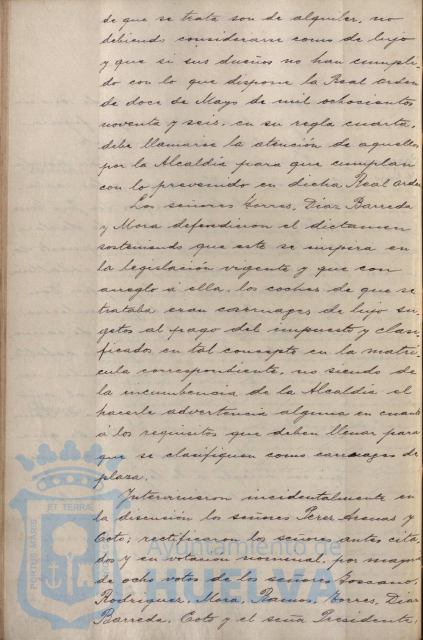 de que se trata son de alquiler, no
debiendo considerarse como de lujo
y que si sus dueños no han cumpli-
do con lo que dispone la Real orden
de doce de Mayo de mil ochocientos
noventa y seis, en su regla cuarta,
debe llamarse la atención de aquellos
por la Alcaldía para que cumplan
con lo prevenido en dicha Real orden
Los señores Torres, Diaz Barreda
y Mora defendieron el dictamen
sosteniendo que este se inspira en
la legislación vigente y que con
arreglo á ella, los coches de que se
trataba eran carruages de lujo su-
getos al pago del impuesto y clasi-
ficados en tal concepto en la matrí-
cula correspondiente, no siendo de
la incumbencia de la Alcaldía el
hacerle advertencia alguna en cuanto
á los requisitos que deben llenar para
que se clasifiquen como carruages de
plaza.
Intervinieron incidentalmente en
la discusión los señores Perez Arenas y
Coto; rectificaron los señores antes cita-
dos y en votación nominal, por mayoria
de ocho votos de los señores
Rodriguez, Mora, Ramos, Torres, Diaz
Barreda, Coto y el señor Presidente,
PORTUS MARIS ET TERRAE
Ayuntamiento de
HUELVA